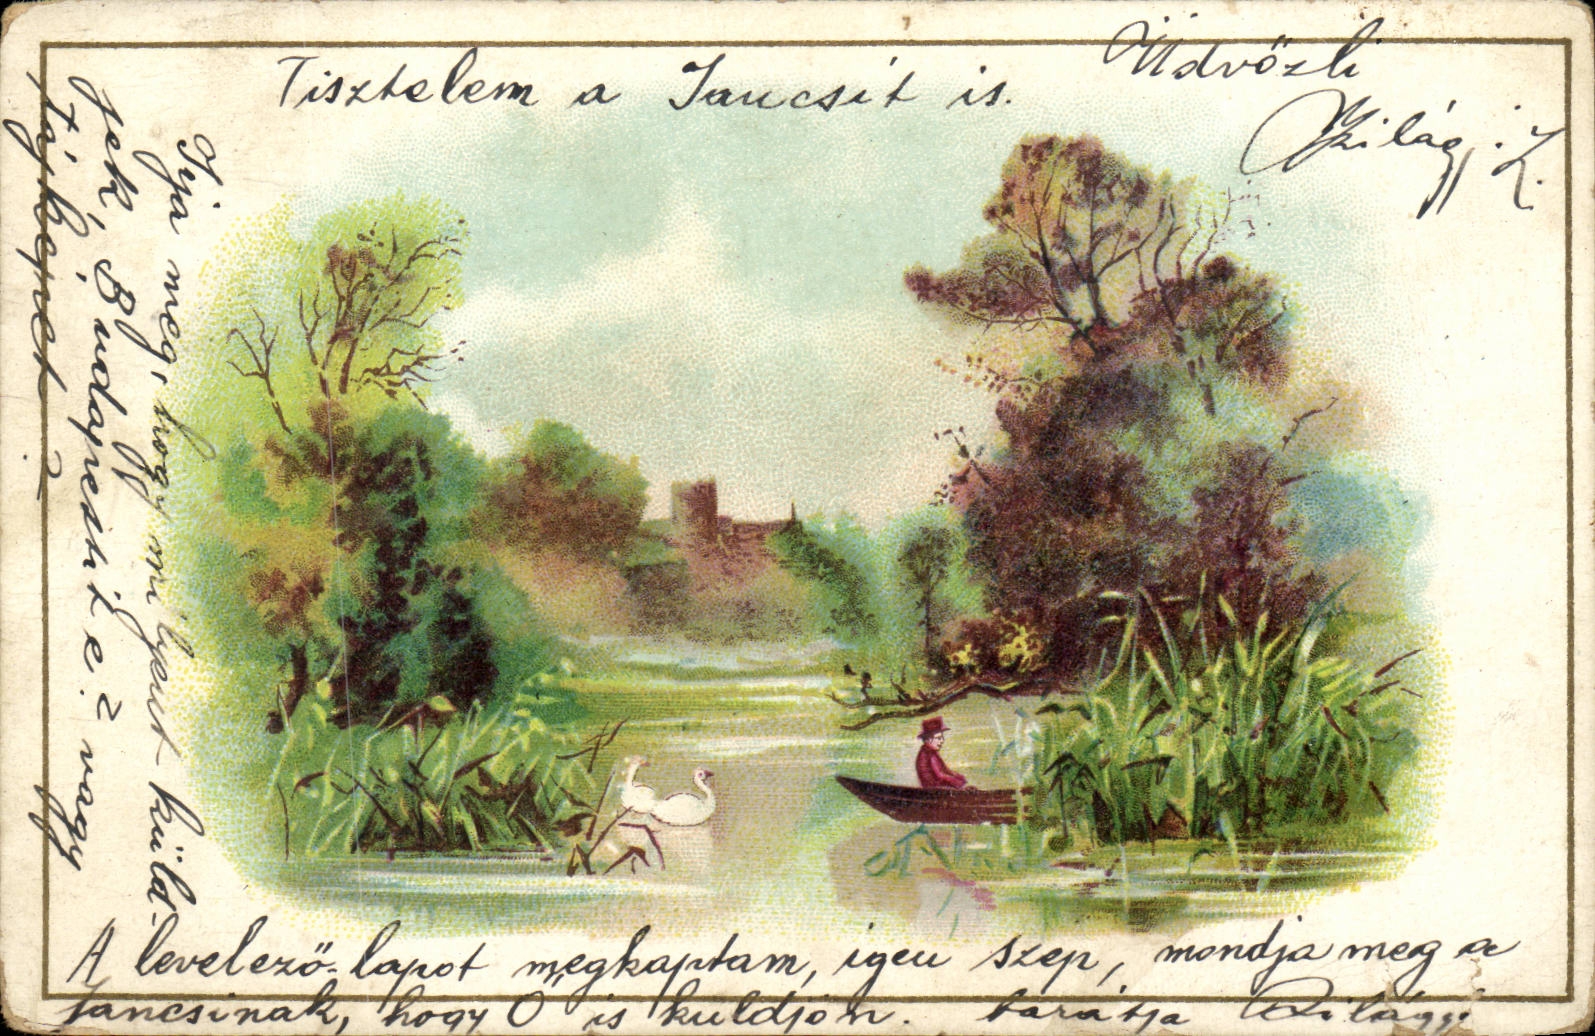 Tisztelem a Jancsit is.
Üdvözli
Szilágyi Z.
Irja meg, hogy milyent küld-
jek, Budapestit e? vagy
tájképet?
A levelező-lapot megkaptam, igen szép, mondja meg a
Jancsinak, hogy Ő is küldjön. barátja Szilágyi